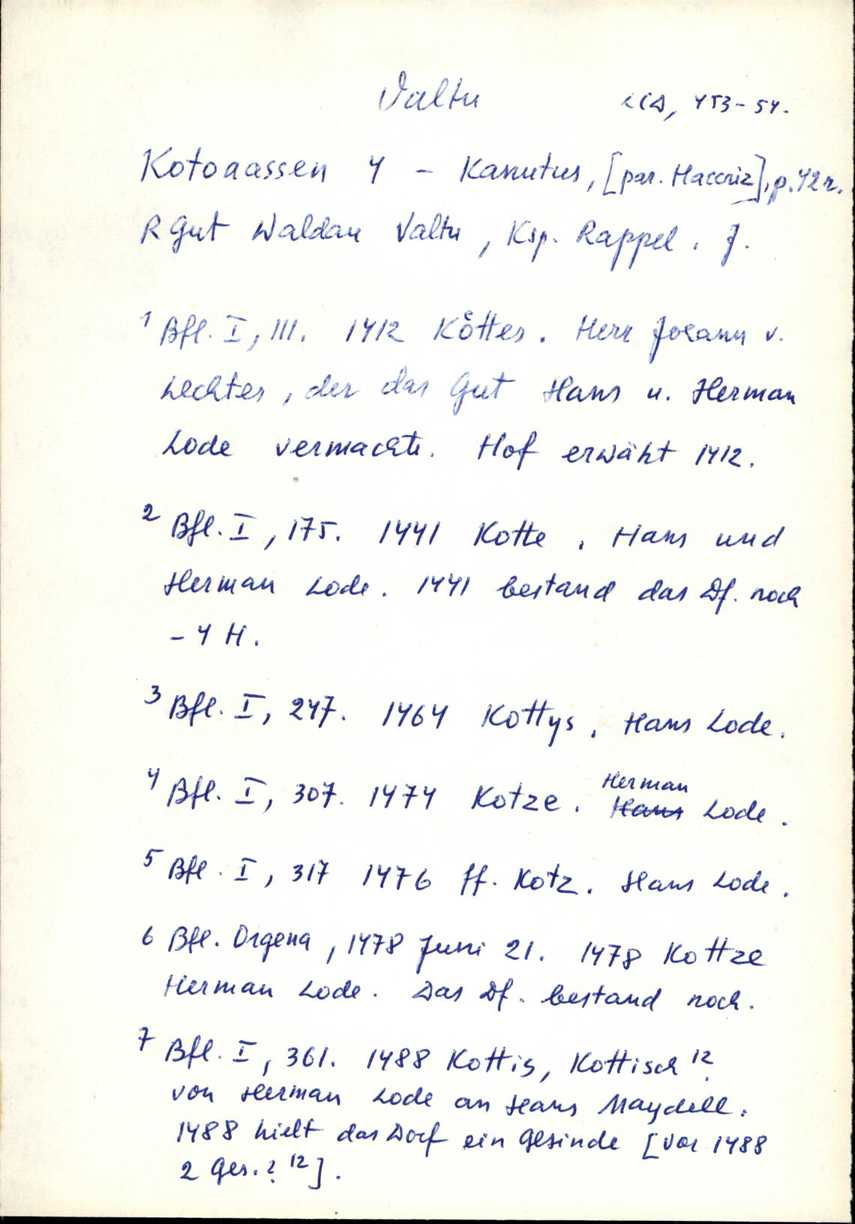 Valtu LCD, 453-54.
Kotoaassen 4 - Kanutus, [par. Haccriz], p. 42r.
R Gut Waldau Valtu, Ksp. Rappel. J.
1 Bfl. I, 111. 1412 Kőttes. Herr Johann v.
Lechtes, der das Gut Hans u. Herman
Lode vermachte. Hof erwäht 1412.
2 Bfl. I, 175. 1441 Kotte. Hans und
Herman Lode. 1441 bestand das Df. noch
- 4 H.
3 Bfl. I, 247. 1464 Kottys. Hans Lode.
4 Bfl. I, 307. 1474 Kotze. Herman Hans Lode.
5 Bfl. I, 317 1476 ff. Kotz. Hans Lode.
6 Bfl. Orgena, 1478 Juni 21. 1478 Kottze
Herman Lode. Das Df. bestand noch.
7 Bfl. I, 361. 1488 Kottis, Kottisch 12.
von Herman Lode an Hans Maydell.
1488 hielt das Dorf ein Gesinde [vor 1488
2 Ges.? 12].